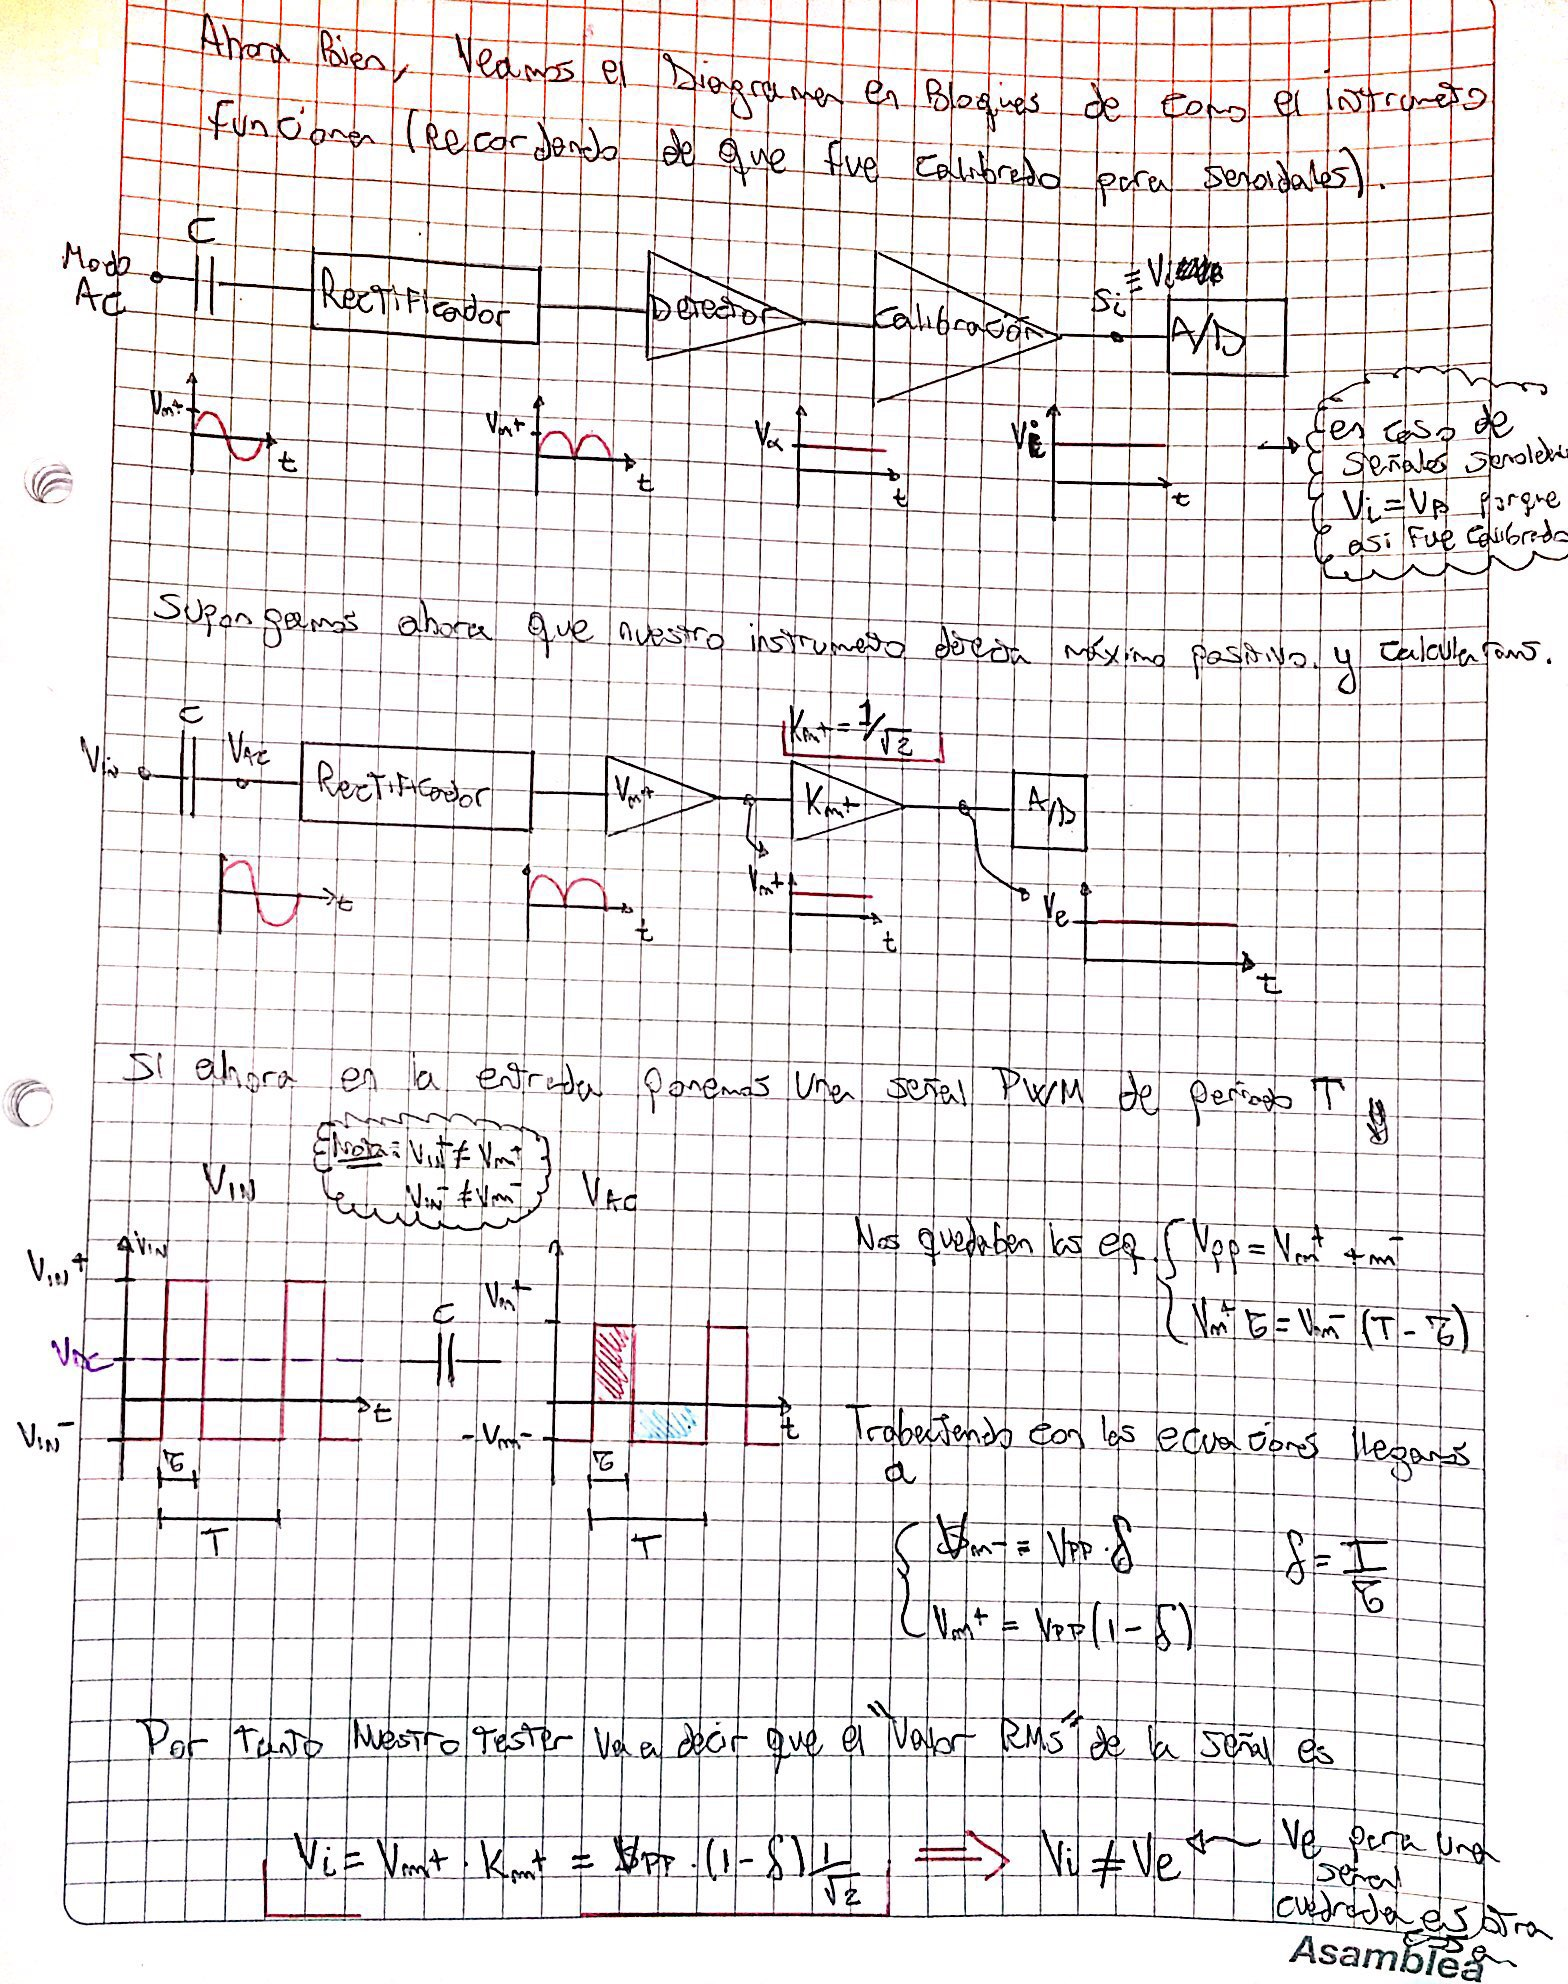 Ahora Bien, Veamos el Diagrama en Bloques de como el intrumeto
funciona (Recordando de que fue calibrado para senoidales).
C
Modo
AC
Rectificador
Detector
Calibración
Si ≡ Vi
A/D
Vm+
t
Vm+
t
Vα
t
Vi
t
en caso de
señales senoidal
Vi = VB porque
asi fue calibrado
Supongamos ahora que nuestro instrumeto detecta máximo positivo. y calculations.
Km+ = 1/√2
C
Vin
VAC
Rectificador
Vm+
Km+
A/D
t
t
Vm+
t
Ve
t
Si ahora en la entrada ponemos una señal PWM de periodo T
Nota: VIN+ ≠ Vm+
VIN- ≠ Vm-
VIN
VAC
VIN+
VIN
VDC
VIN-
t
τ
T
C
Vm+
-Vm-
t
τ
T
Nos quedaban las eq. { Vpp = Vm+ + m-
Vm+ τ = Vm- (T - τ)
Trabajando con las ecuaciones llegamos
a
Vm- = VPP · δ
δ = T/τ
Vm+ = VPP (1 - δ)
Por tanto Nuestro tester va a decir que el "Valor RMS" de la señal es
Vi = Vm+ · Km+ = VPP · (1 - δ) 1/√2 ⟹ Vi ≠ Ve ← Ve para una
señal
cuadrada es otra
Asamblea